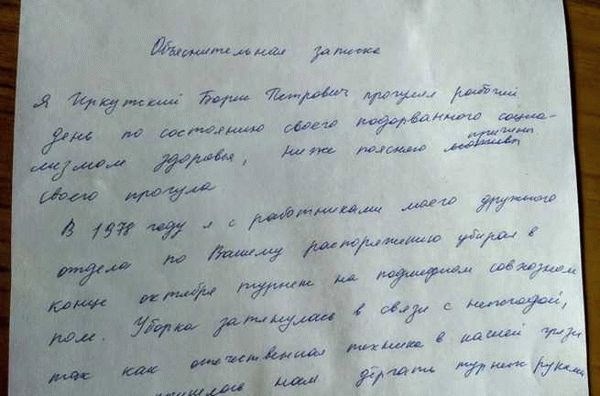 Объяснительная записка
Я Иркутский Борис Петрович прогулял рабочий
день по состоянию своего подорванного социа-
лизмом здоровья, ниже поясняю мотивы причины
своего прогула
В 1978 году я с работниками моего дружного
отдела по Вашему распоряжению убирал в
конце октября турнепс на подшефном совхозном
поле. Уборка затянулась в связи с непогодой,
так как отечественная техника в нашей грязи
пришлось нам дёргать турнепс руками